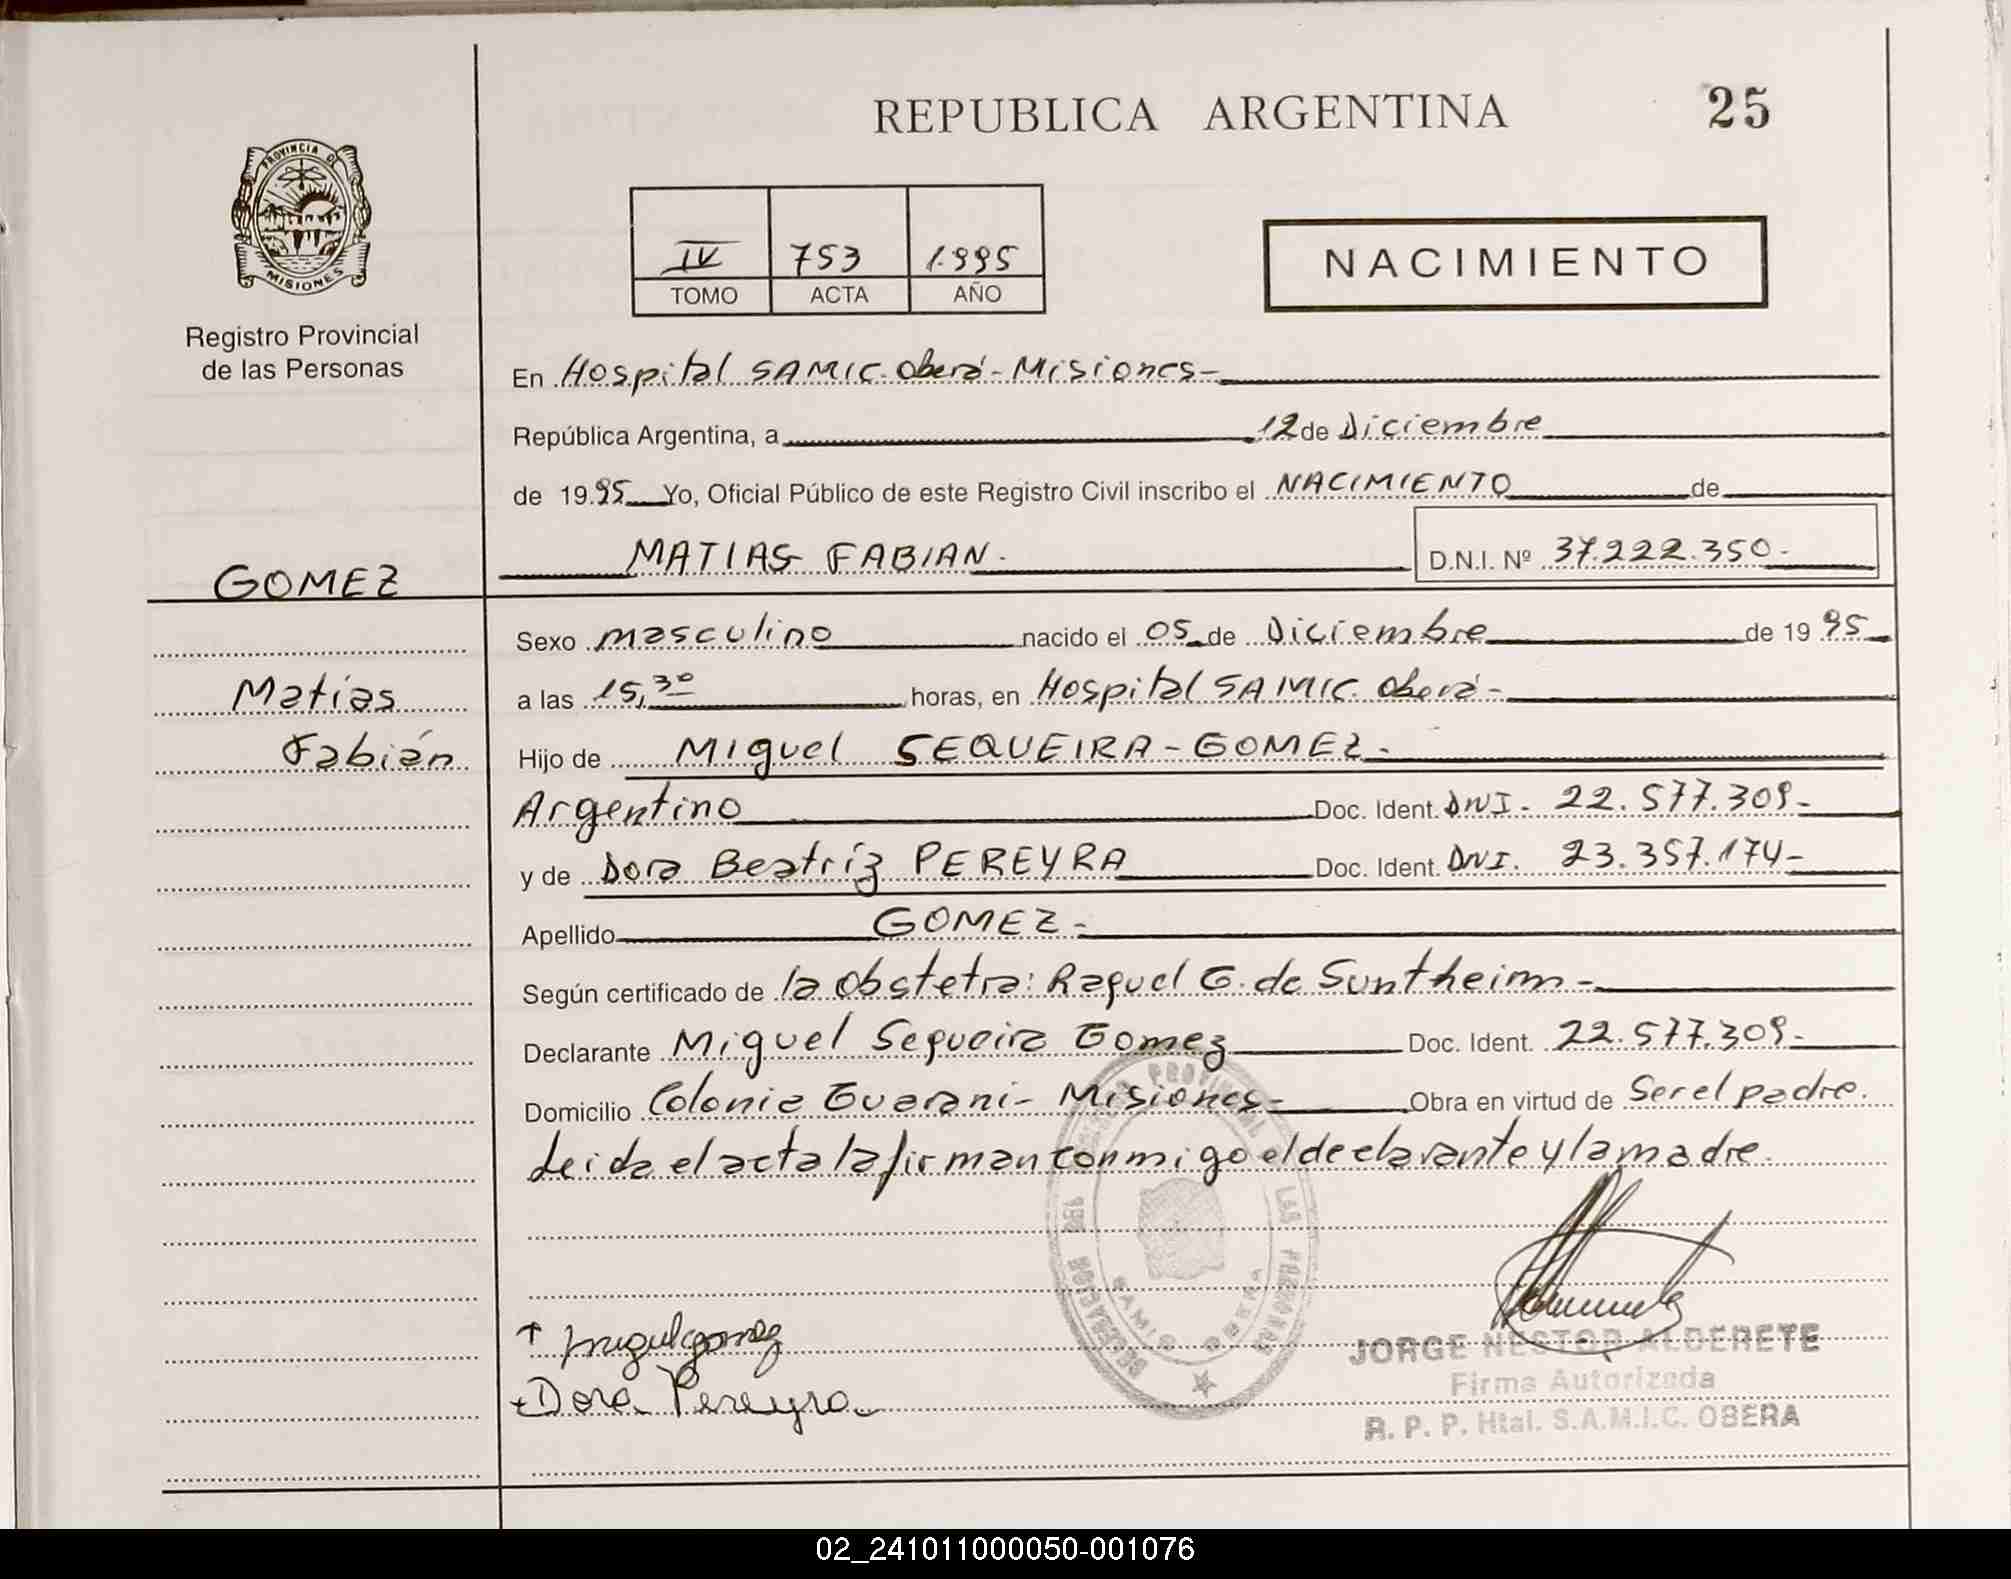 REPUBLICA ARGENTINA
25
PROVINCIA DE
MISIONES
IV 753 1.995
TOMO ACTA AÑO
NACIMIENTO
Registro Provincial
de las Personas
En Hospital SAMIC. Oberá - Misiones -
República Argentina, a 12 de Diciembre
de 19 95 Yo, Oficial Público de este Registro Civil inscribo el NACIMIENTO de
MATIAS FABIAN. D.N.I. Nº 37.222.350.-
GOMEZ
Matías
Fabián
Sexo masculino nacido el 05 de Diciembre de 19 95
a las 15,30 horas, en Hospital SAMIC. Oberá -
Hijo de Miguel SEQUEIRA - GOMEZ -
Argentino Doc. Ident. DNI. 22.577.309-
y de Dora Beatríz PEREYRA Doc. Ident. DNI. 23.357.174-
Apellido GOMEZ -
Según certificado de la Obstetra: Raquel G. de Suntheim -
Declarante Miguel Sequeira Gomez Doc. Ident. 22.577.309-
Domicilio Colonia Guarani - Misiones - Obra en virtud de Ser el padre.
Leida el acta la firman conmigo el declarante y la madre.
miguel gomez
Dora Pereyra
PROVINCIAL DE LAS PERSONAS
SAMIC OBERA
JORGE NESTOR ALDERETE
Firma Autorizada
R. P. P. Htal. S.A.M.I.C. OBERA
02_241011000050-001076